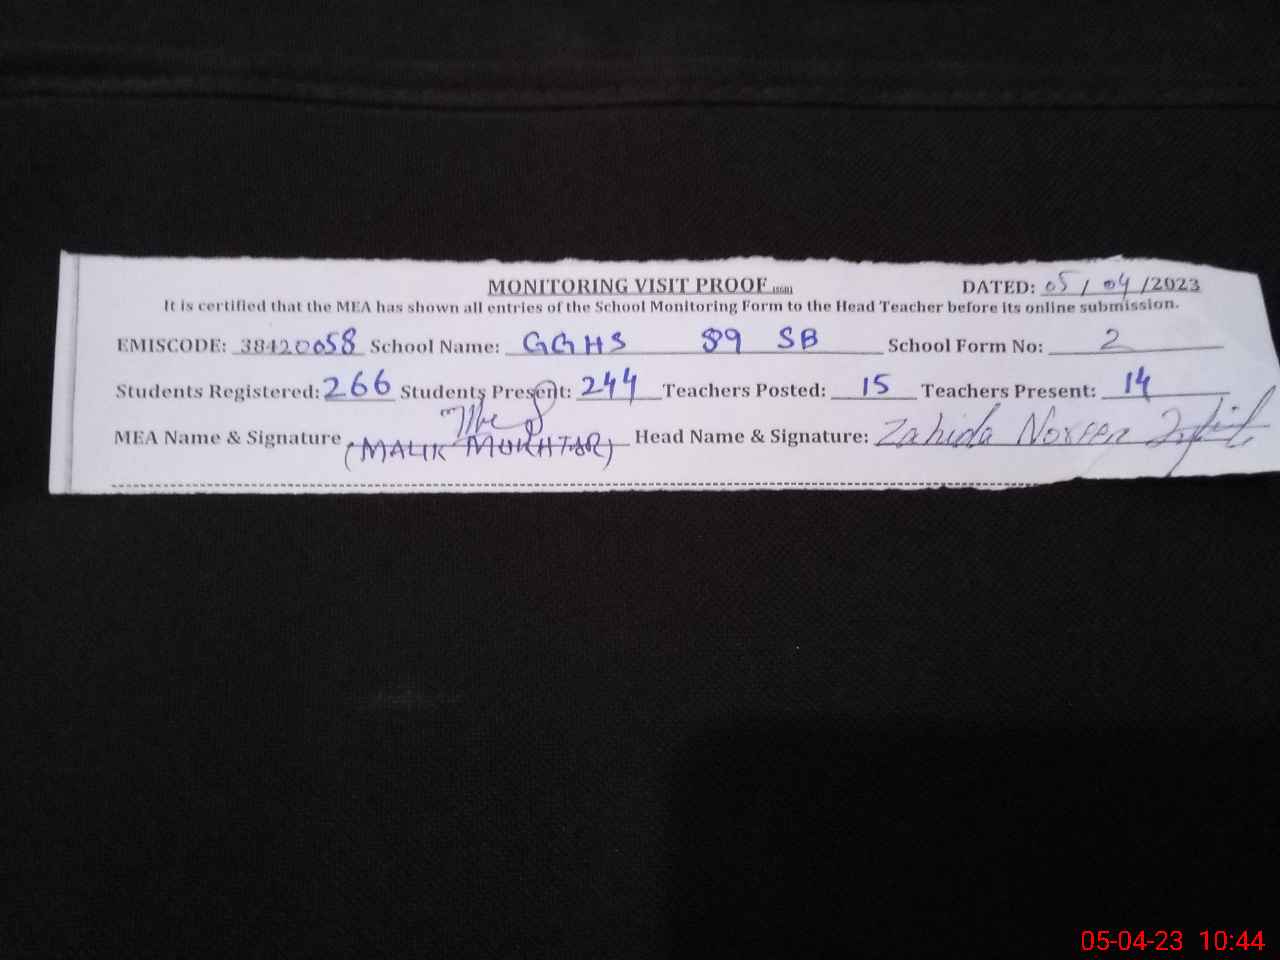 MONITORING VISIT PROOF (SGD) DATED: 05/04/2023
It is certified that the MEA has shown all entries of the School Monitoring Form to the Head Teacher before its online submission.
EMISCODE: 38420058 School Name: GGHS 89 SB School Form No: 2
Students Registered: 266 Students Present: 244 Teachers Posted: 15 Teachers Present: 14
MEA Name & Signature (MALIK MUKHTAR) Head Name & Signature: Zahida Noreen
05-04-23 10:44